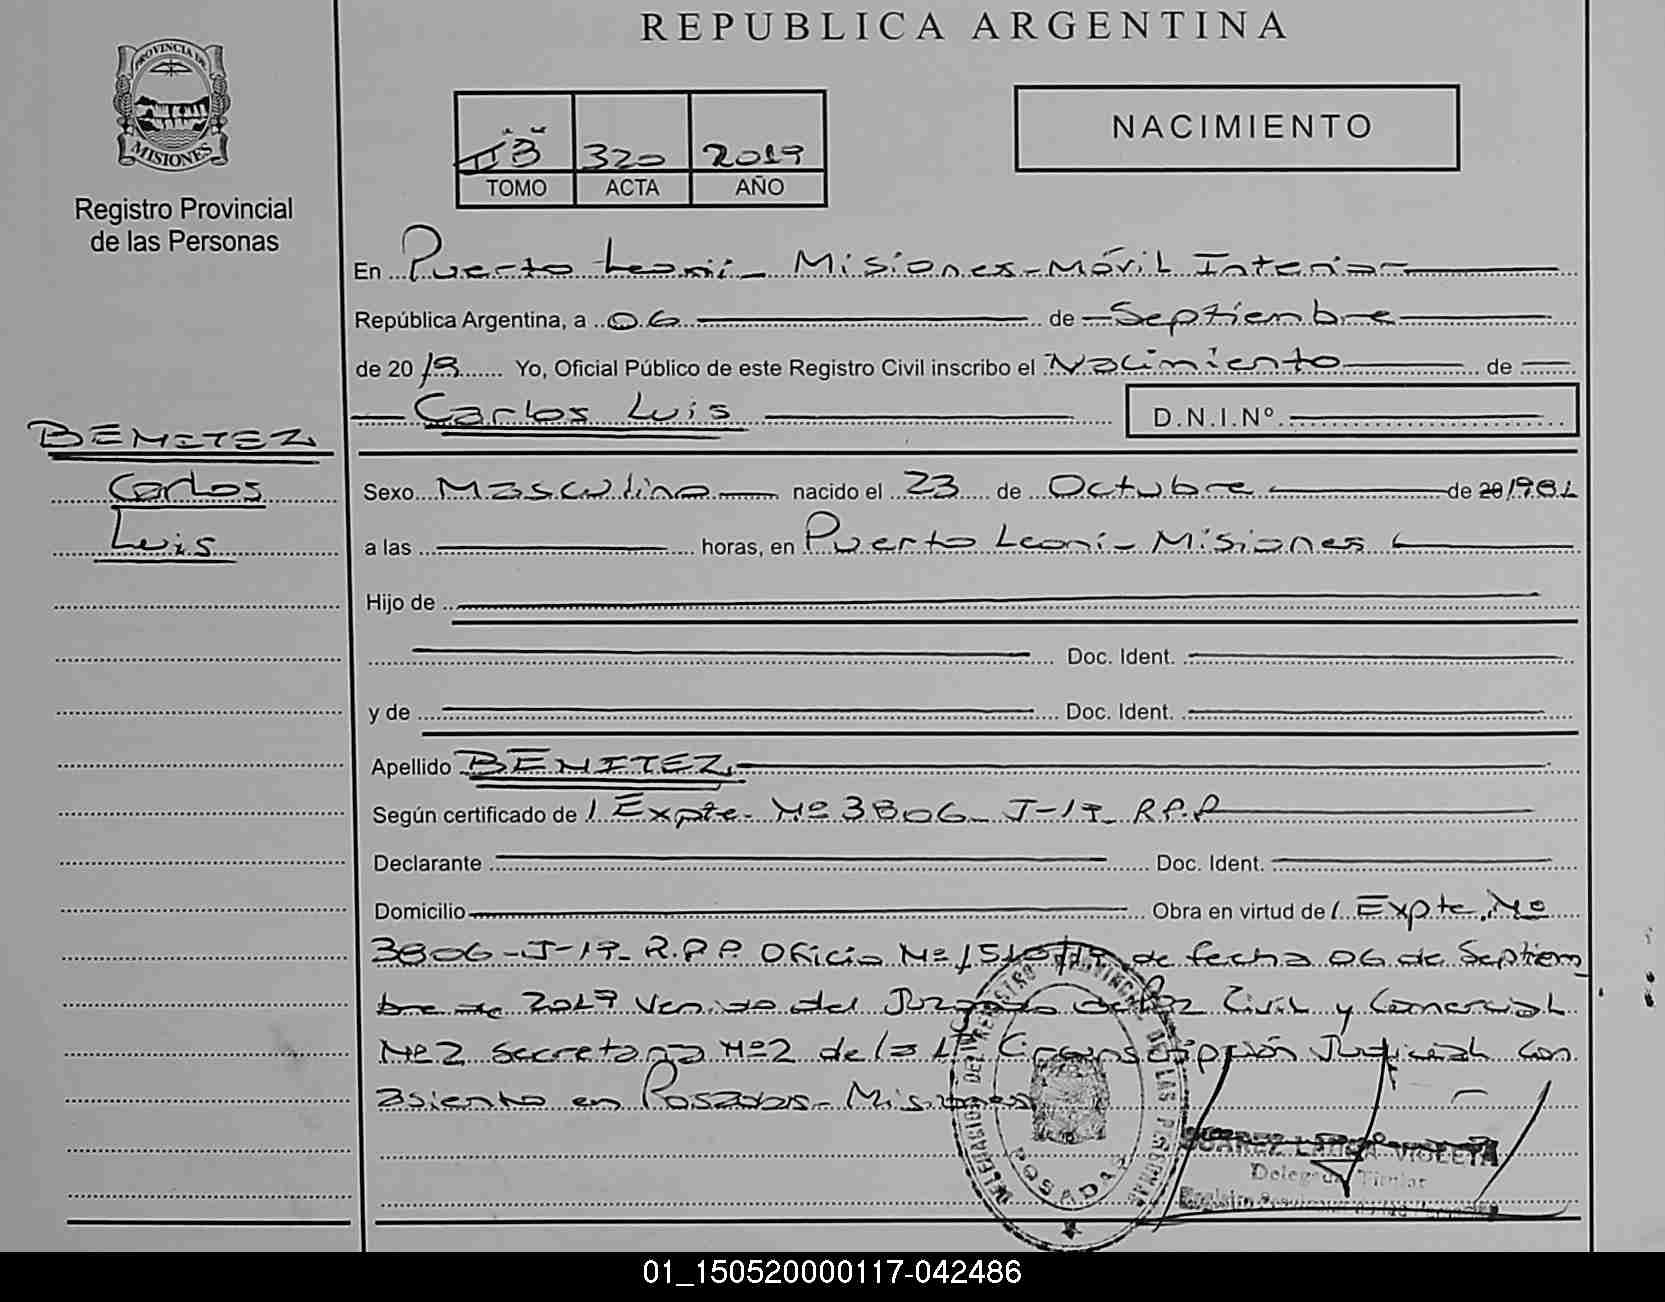 REPUBLICA ARGENTINA
PROVINCIA DE
MISIONES
Registro Provincial
de las Personas
320 2019
TOMO ACTA AÑO
NACIMIENTO
En Puerto Leoni - Misiones - Móvil Interior
República Argentina, a 06 de Septiembre
de 20 19 Yo, Oficial Público de este Registro Civil inscribo el Nacimiento de
Carlos Luis D.N.I.Nº
BENITEZ
Carlos
Luis
Sexo Masculino nacido el 23 de Octubre de 20 1981
a las horas, en Puerto Leoni - Misiones
Hijo de
Doc. Ident.
y de Doc. Ident.
Apellido BENITEZ
Según certificado de Expte. Nº 3806 - J-19 - R.P.P
Declarante Doc. Ident.
Domicilio Obra en virtud de Expte. Nº
3806 - J-19 - R.P.P. Oficio Nº de fecha 06 de Septiem
bre de 2019 venido del Juzgado de Paz Civil y Comercial
Nº 2 Secretaria Nº 2 de la Circunscripción Judicial con
asiento en Posadas - Misiones
DELEGACION DEL REGISTRO PROVINCIAL DE LAS PERSONAS
POSADAS
SUAREZ VIOLETA
Delegada Titular
01_150520000117-042486